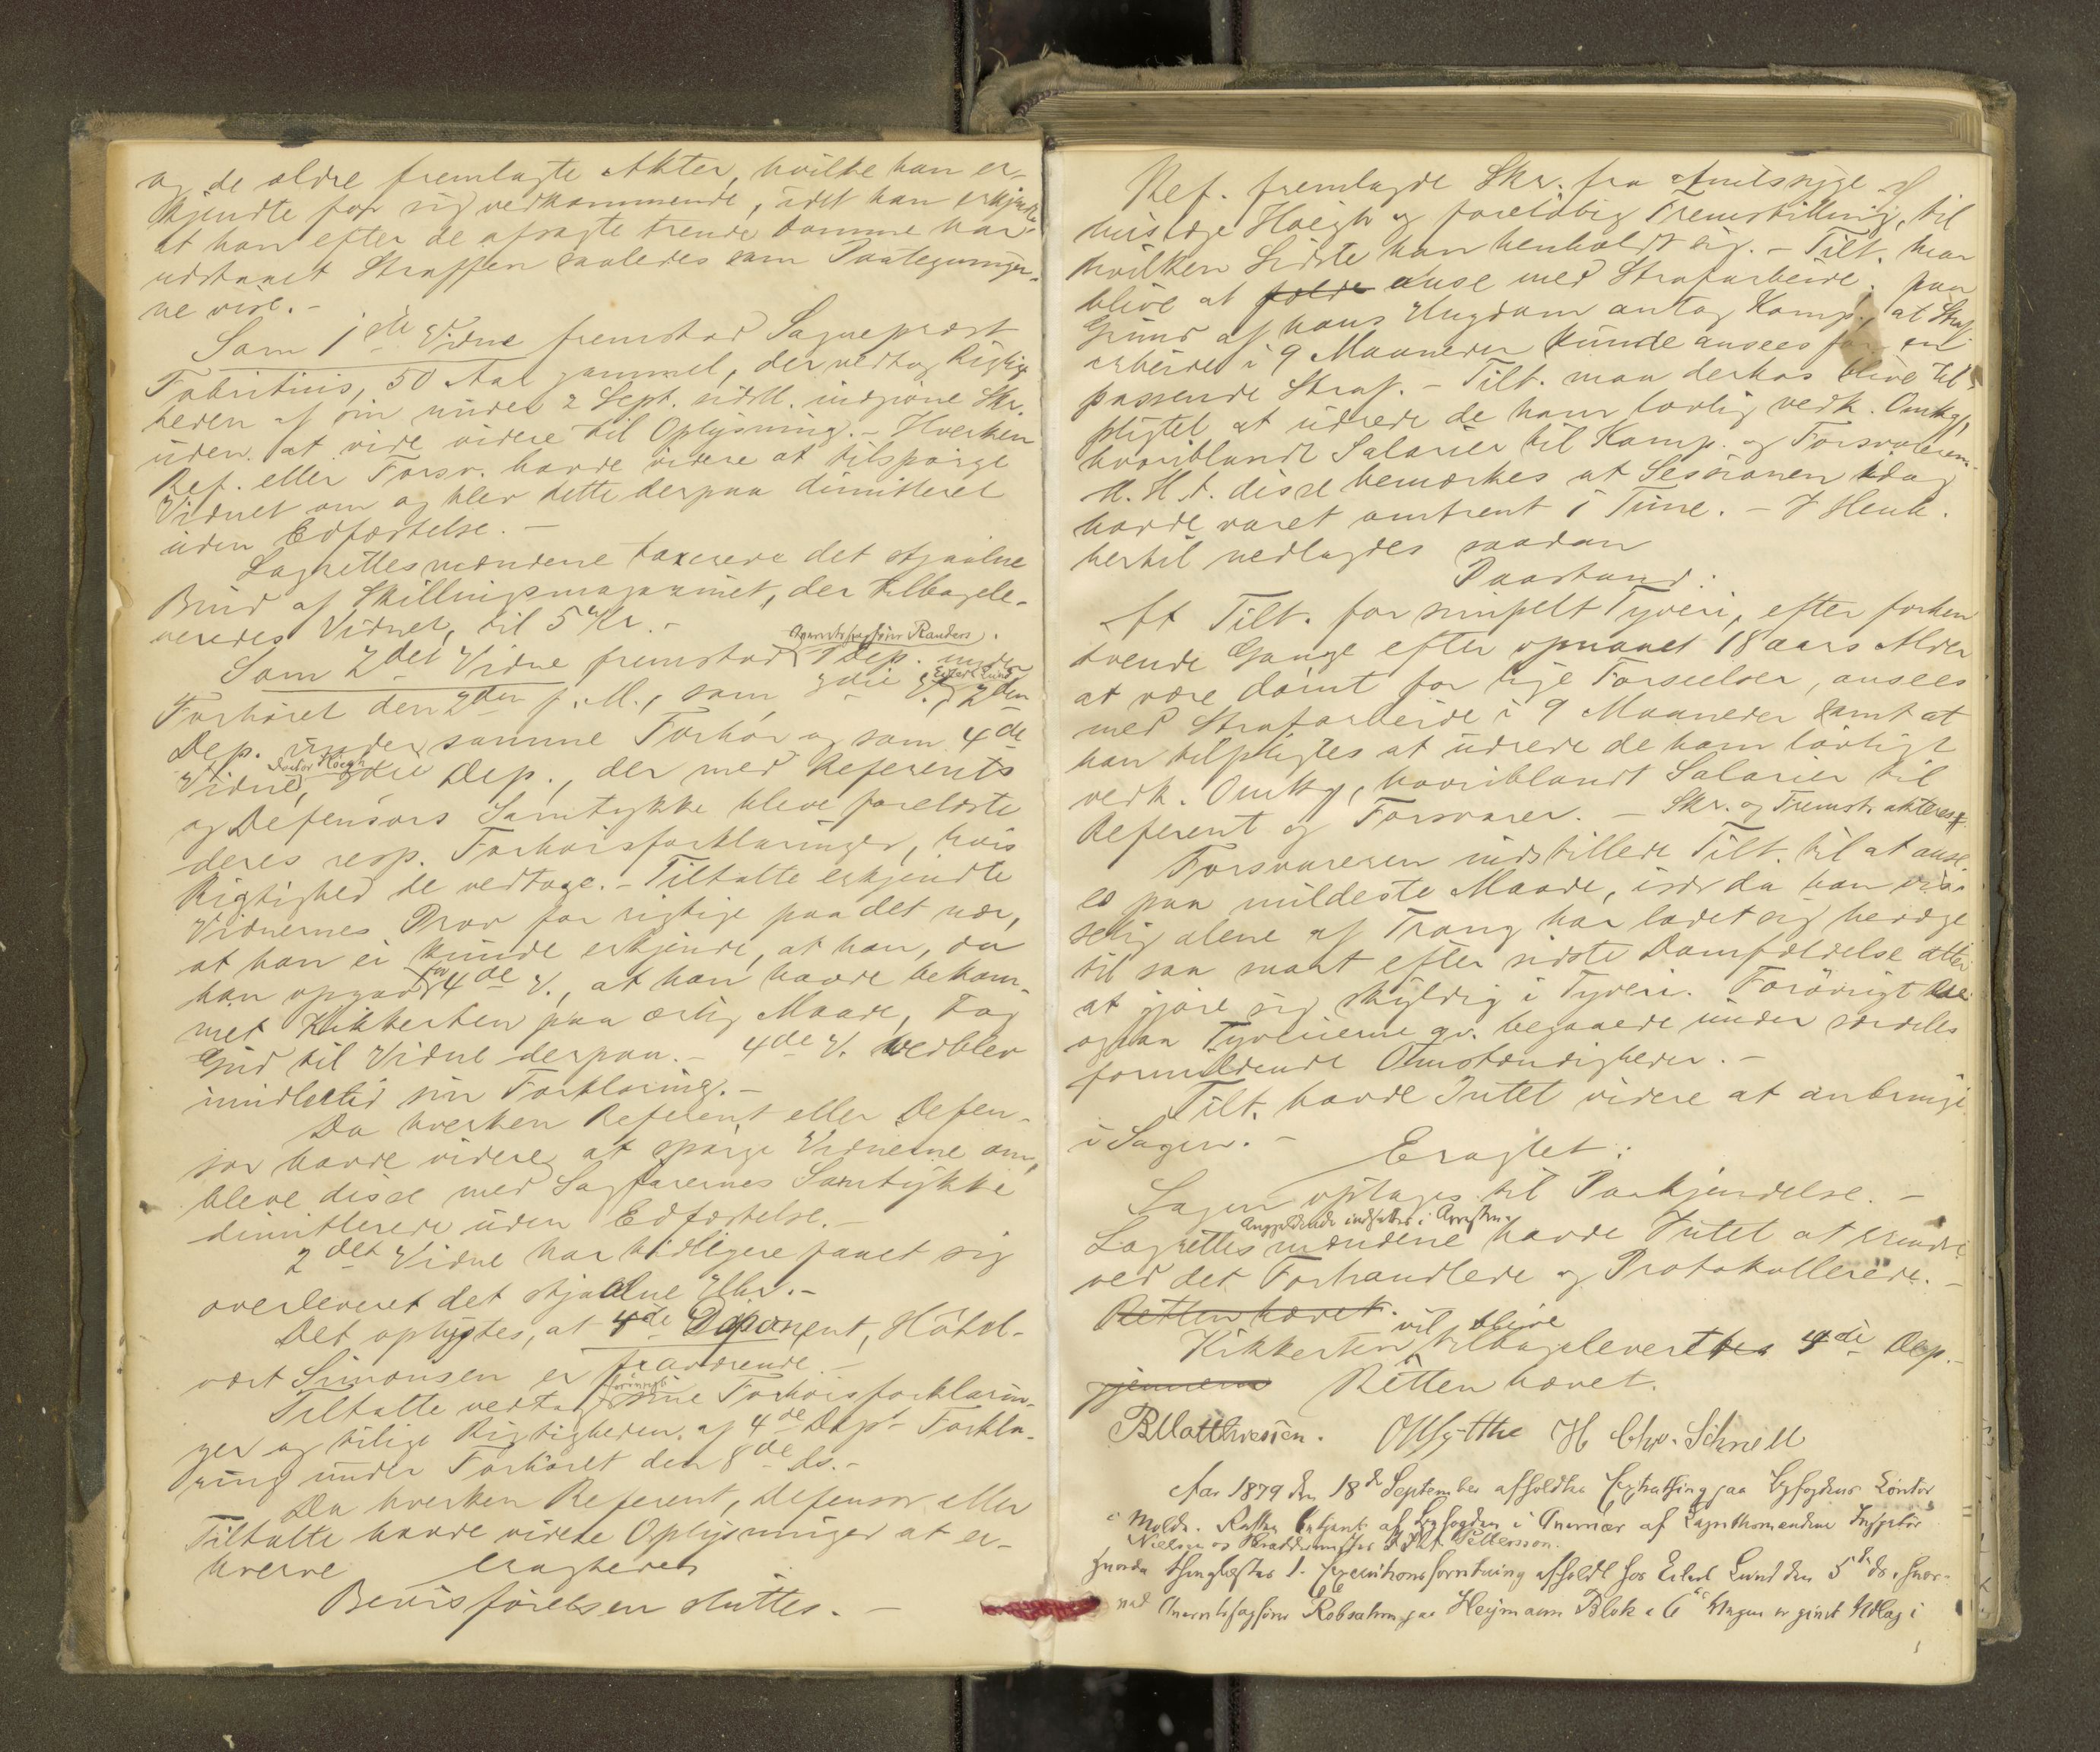 og de ældre fremlagte Akter, hvilke han er-
kjendte for sig vedkommende, idet han erkjendte
at han efter de afsagte trende Domme har
udstaaet Straffen saaledes som Paategninger-
ne vise.-
Som 1ste Vidne fremstod Sogneprest
Fabritius, 50 Aar gammel, der vedtog Rigtig-
heden af sin under 2 Sept. sidstl. indgivne Skr.
uden at vide videre til Oplysning.- Hverken
Ref. eller Forsv. havde videre at tilspørge
Vidnet om og blev dette derpaa dimitteret
uden Edfæstelse.-
Lagrettesmændene taxerede det stjaalne
Bind af Skillingsmagazinet, der tilbagele-
veredes Vidnet, til 5 Kr.-
Overretssagfører Randers.
Som 2det Vidne fremstod 1 Dep. under
Forhøret den 2den f.M., som 3die Edert Lund 2den
Dep. under samme Forhør og som 4de
Vidne, Doctor Høegh 3die Dep., der med Referents
og Defensors Samtykke bleve forelæste
deres resp. Forhørsforklaringer, hvis
Rigtighed de vedtoge.- Tiltalte erkjendte
Vidnernes Prov for rigtige paa det nær,
at han ei kunde erkjende, at han, da
han opgav for 4de V., at han havde bekom-
met Kikkerten paa ærlig Maade, tog
Gud til Vidne derpaa.- 4de V. vedblev
imidlertid sin Forklaring.-
Da hverken Referent eller Defen-
sor havde videre at spørge Vidnerne om,
bleve disse med Sagførernes Samtykke
dimitterede uden Edfæstelse.-
2det Vidne har tidligere faaet sig
overleveret det stjaalne Uhr.-
Det oplystes, at 4de Deponent, Hôtel-
vært Simonsen er fraværende.-
Tiltalte vedtog forøvrigt sine Forhørsforklarin-
ger og tillige Rigtigheden af 4de Dept Forkla-
ring under Forhøret den 8de ds.-
Da hverken Referent, Defensor eller
Tiltalte havde videre Oplysninger at er-
hverve eragtedes
Bevisførelsen sluttes.-
Ref. fremlagde Skr. fra Amtssyge-
huslæge Høegh og foreløbig Fremstilling, til
hvilken Sidste han henholdt sig.- Tilt. maa
blive at følde anse med Strafarbeide. paa
Grund af hans Ungdom antog Komp. at Straf-
arbeide i 9 Maaneder kunde ansees for en
passende Straf.- Tilt. maa derhos blive til-
pligtet at udrede de ham lovlig vedk. Omkg,
hvoriblandt Salarier til Komp. og Forsvareren.
M. H. t. disse bemærkes at Sessionen idag
havde varet omtrent 1 Time.- I Henh.
hertil nedlagdes saadan
Paastand:
At Tilt. for simpelt Tyveri, efter forhen
tvende Gange efter opnaaet 18 aars Alder
at være dømt for lige Forseelser, ansees
med Strafarbeide i 9 Maaneder samt at
han tilpligtes at udrede de ham lovligt
vedk. Omkg, hvoriblandt Salarier til
Referent og Forsvarer.- Skr. og Fremst. akteres
Forsvareren indstillede Tilt. til at anse-
es paa mildeste Maade, især da han vis-
selig alene af Trang har ladet sig bevæge
til saa snart efter sidste Domfældelse atter
at gjøre sig skyldig i Tyveri. Forøvrigt
ogsaa Tyverierne qv. begaaede under særdeles
formildende Omstændigheder.-
Tilt. havde Intet videre at anbringe
i Sagen.-
Eragtet:
Sagen optages til Paakjendelse.-
Angjældende indsættes i Arresten.
Lagrettesmændene havde Intet at erindre
ved det Forhandlede og Protokollerede.-
Retten hævet.
Kikkerten vil blive tilbageleveret 4de Dep.-
gjennem Retten hævet.
B Matthiesen. O Mythe H Chr. Schnell
Aar 1879 den 18de September afholdtes Extrathing paa Byfogdens Contor
i Molde. Retten betjent af Byfogden i Overvær af Lagrettesmændene Inspektør
Nielsen og Skræddermester Pettersen.
Hvorda thinglæstes 1. Executionsforretning afholdt hos Edert Lund den 5te ds, hvor-
ved Overretssagfører Robsahm paa Heymann Bloks Vegne er givet Udlæg i